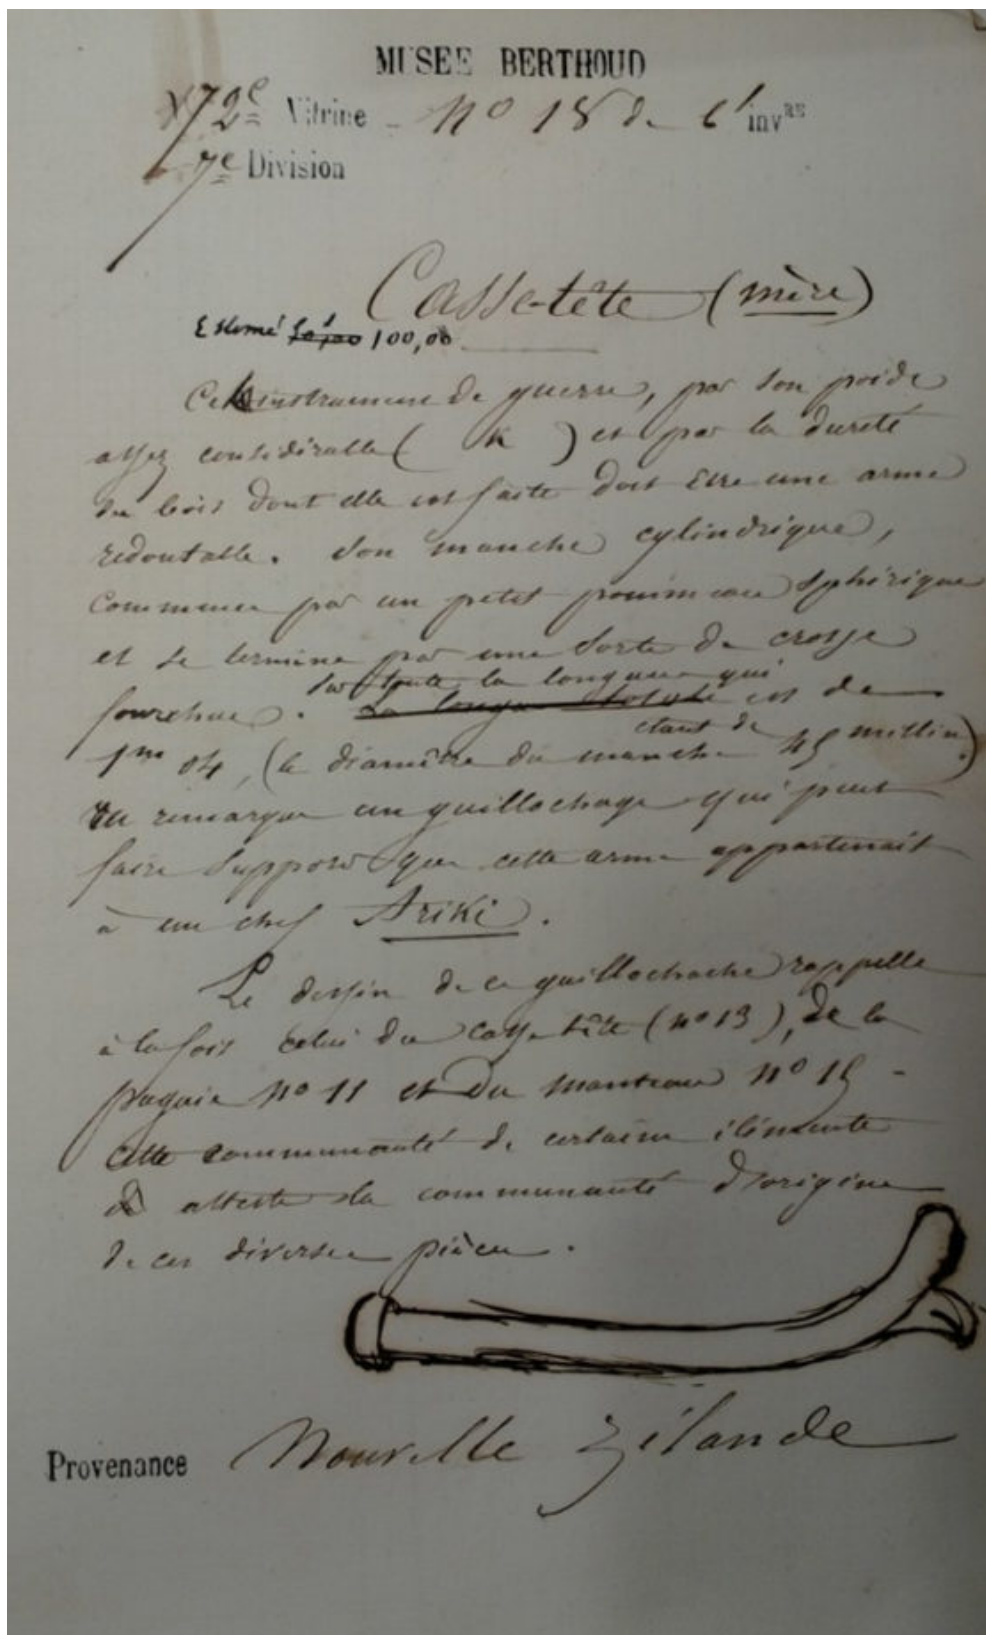 MUSEE BERTHOUD
72e Vitrine - No 18 de l'invre
7e Division
Casse-tête (mère)
Estimé 50,00 100,00
Cet instrument de guerre, par son poids
assez considérable ( K ) et par la dureté
du bois dont elle est faite doit être une arme
redoutable. Son manche cylindrique,
commence par un petit pommeau sphérique
et se termine par une sorte de crosse
sur toute la longueur qui
fourchue. La longueur totale est de
étant de
1m 04, (le diamètre du manche 45 millim.)
on remarque un guillochage qui peut
faire supposer que cette arme appartenait
à un chef Ariki.
Le dessin de ce guillochache rappelle
à la fois celui du casse tête (no 13), de la
pagaie No 11 et du manteau No 15 -
Cette communauté de certains éléments
atteste la communauté d'origine
de ces diverses pièces.
Provenance Nouvelle Zélande